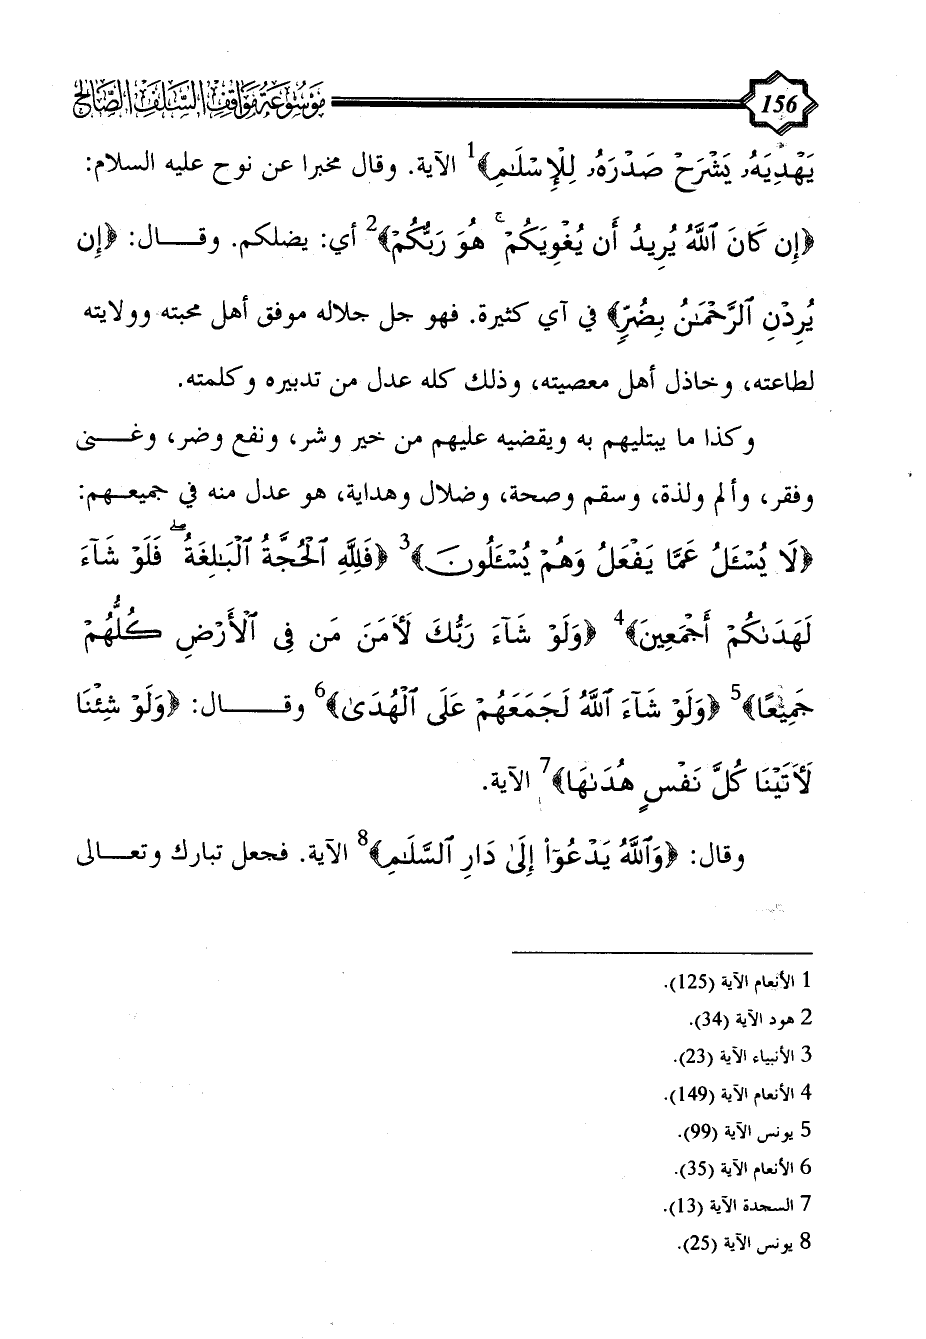 موسوعة مواقف السلف الصالح 156
يَهْدِيَهُۥ يَشْرَحْ صَدْرَهُۥ لِلْإِسْلَـٰمِ﴾1 الآية. وقال مخبرا عن نوح عليه السلام:
﴿إِن كَانَ ٱللَّهُ يُرِيدُ أَن يُغْوِيَكُمْ ۚ هُوَ رَبُّكُمْ﴾2 أي: يضلكم. وقـــال: ﴿إِن
يُرِدْنِ ٱلرَّحْمَـٰنُ بِضُرٍّ﴾ في آي كثيرة. فهو جل جلاله موفق أهل محبته وولايته
لطاعته، وخاذل أهل معصيته، وذلك كله عدل من تدبيره وكلمته.
وكذا ما يبتليهم به ويقضيه عليهم من خير وشر، ونفع وضر، وغـــنى
وفقر، وألم ولذة، وسقم وصحة، وضلال وهداية، هو عدل منه في جميعـــهم:
﴿لَا يُسْـَٔلُ عَمَّا يَفْعَلُ وَهُمْ يُسْـَٔلُونَ﴾3 ﴿فَلِلَّهِ ٱلْحُجَّةُ ٱلْبَـٰلِغَةُ ۖ فَلَوْ شَآءَ
لَهَدَىٰكُمْ أَجْمَعِينَ﴾4 ﴿وَلَوْ شَآءَ رَبُّكَ لَـَٔامَنَ مَن فِى ٱلْأَرْضِ كُلُّهُمْ
جَمِيعًا﴾5 ﴿وَلَوْ شَآءَ ٱللَّهُ لَجَمَعَهُمْ عَلَى ٱلْهُدَىٰ﴾6 وقـــــال: ﴿وَلَوْ شِئْنَا
لَـَٔاتَيْنَا كُلَّ نَفْسٍ هُدَىٰهَا﴾7 الآية.
وقال: ﴿وَٱللَّهُ يَدْعُوٓا۟ إِلَىٰ دَارِ ٱلسَّلَـٰمِ﴾8 الآية. فجعل تبارك وتعـــالى
1 الأنعام الآية (125).
2 هود الآية (34).
3 الأنبياء الآية (23).
4 الأنعام الآية (149).
5 يونس الآية (99).
6 الأنعام الآية (35).
7 السجدة الآية (13).
8 يونس الآية (25).